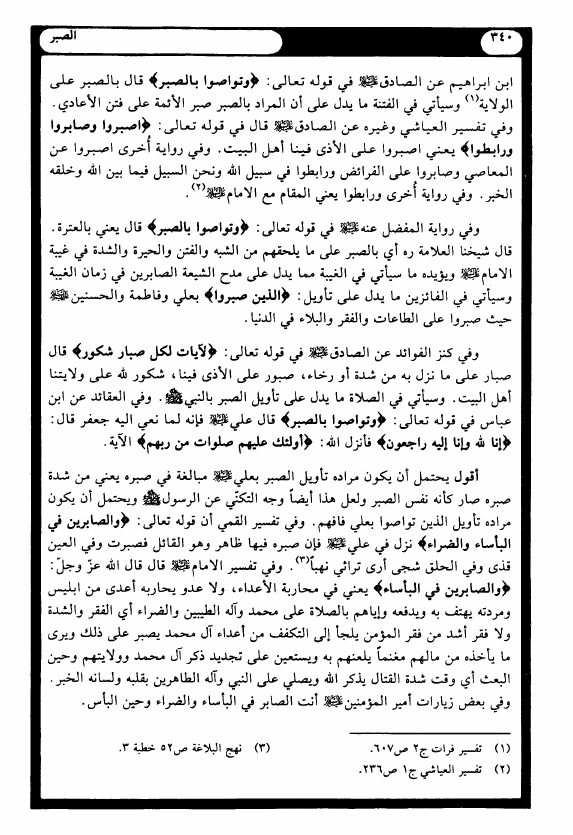 ٣٤٠
الصبر
ابن ابراهيم عن الصادق ﷺ في قوله تعالى: ﴿وتواصوا بالصبر﴾ قال بالصبر على
الولاية(١) وسيأتي في الفتنة ما يدل على أن المراد بالصبر صبر الأئمة على فتن الأعادي.
وفي تفسير العياشي وغيره عن الصادق ﷺ قال في قوله تعالى: ﴿اصبروا وصابروا
ورابطوا﴾ يعني اصبروا على الأذى فينا أهل البيت. وفي رواية أُخرى اصبروا عن
المعاصي وصابروا على الفرائض ورابطوا في سبيل الله ونحن السبيل فيما بين الله وخلقه
الخبر. وفي رواية أُخرى ورابطوا يعني المقام مع الامام ﷺ(٢).
وفي رواية المفضل عنه ﷺ في قوله تعالى: ﴿وتواصوا بالصبر﴾ قال يعني بالعترة.
قال شيخنا العلامة ره أي بالصبر على ما يلحقهم من الشبه والفتن والحيرة والشدة في غيبة
الامام ﷺ ويؤيده ما سيأتي في الغيبة مما يدل على مدح الشيعة الصابرين في زمان الغيبة
وسيأتي في الفائزين ما يدل على تأويل: ﴿الذين صبروا﴾ بعلي وفاطمة والحسنين ﷺ
حيث صبروا على الطاعات والفقر والبلاء في الدنيا.
وفي كنز الفوائد عن الصادق ﷺ في قوله تعالى: ﴿لآيات لكل صبار شكور﴾ قال
صبار على ما نزل به من شدة أو رخاء، صبور على الأذى فينا، شكور لله على ولايتنا
أهل البيت. وسيأتي في الصلاة ما يدل على تأويل الصبر بالنبي ﷺ. وفي العقائد عن ابن
عباس في قوله تعالى: ﴿وتواصوا بالصبر﴾ قال علي ﷺ فإنه لما نعي اليه جعفر قال:
﴿إنا لله وإنا إليه راجعون﴾ فأنزل الله: ﴿أولئك عليهم صلوات من ربهم﴾ الآية.
أقول يحتمل أن يكون مراده تأويل الصبر بعلي ﷺ مبالغة في صبره يعني من شدة
صبره صار كأنه نفس الصبر ولعل هذا أيضاً وجه التكنّي عن الرسول ﷺ ويحتمل أن يكون
مراده تأويل الذين تواصوا بعلي فافهم. وفي تفسير القمي أن قوله تعالى: ﴿والصابرين في
البأساء والضراء﴾ نزل في علي ﷺ فإن صبره فيها ظاهر وهو القائل فصبرت وفي العين
قذى وفي الحلق شجى أرى تراثي نهباً(٣). وفي تفسير الامام ﷺ قال قال الله عزّ وجلّ:
﴿والصابرين في البأساء﴾ يعني في محاربة الأعداء، ولا عدو يحاربه أعدى من ابليس
ومردته يهتف به ويدفعه وإياهم بالصلاة على محمد وآله الطيبين والضراء أي الفقر والشدة
ولا فقر أشد من فقر المؤمن يلجأ إلى التكفف من أعداء آل محمد يصبر على ذلك ويرى
ما يأخذه من مالهم مغنماً يلعنهم به ويستعين على تجديد ذكر آل محمد وولايتهم وحين
البعث أي وقت شدة القتال يذكر الله ويصلي على النبي وآله الطاهرين بقلبه ولسانه الخبر.
وفي بعض زيارات أمير المؤمنين ﷺ أنت الصابر في البأساء والضراء وحين البأس.
(١) تفسير فرات ج٢ ص٦٠٧.
(٢) تفسير العياشي ج١ ص٢٣٦.
(٣) نهج البلاغة ص٥٢ خطبة ٣.